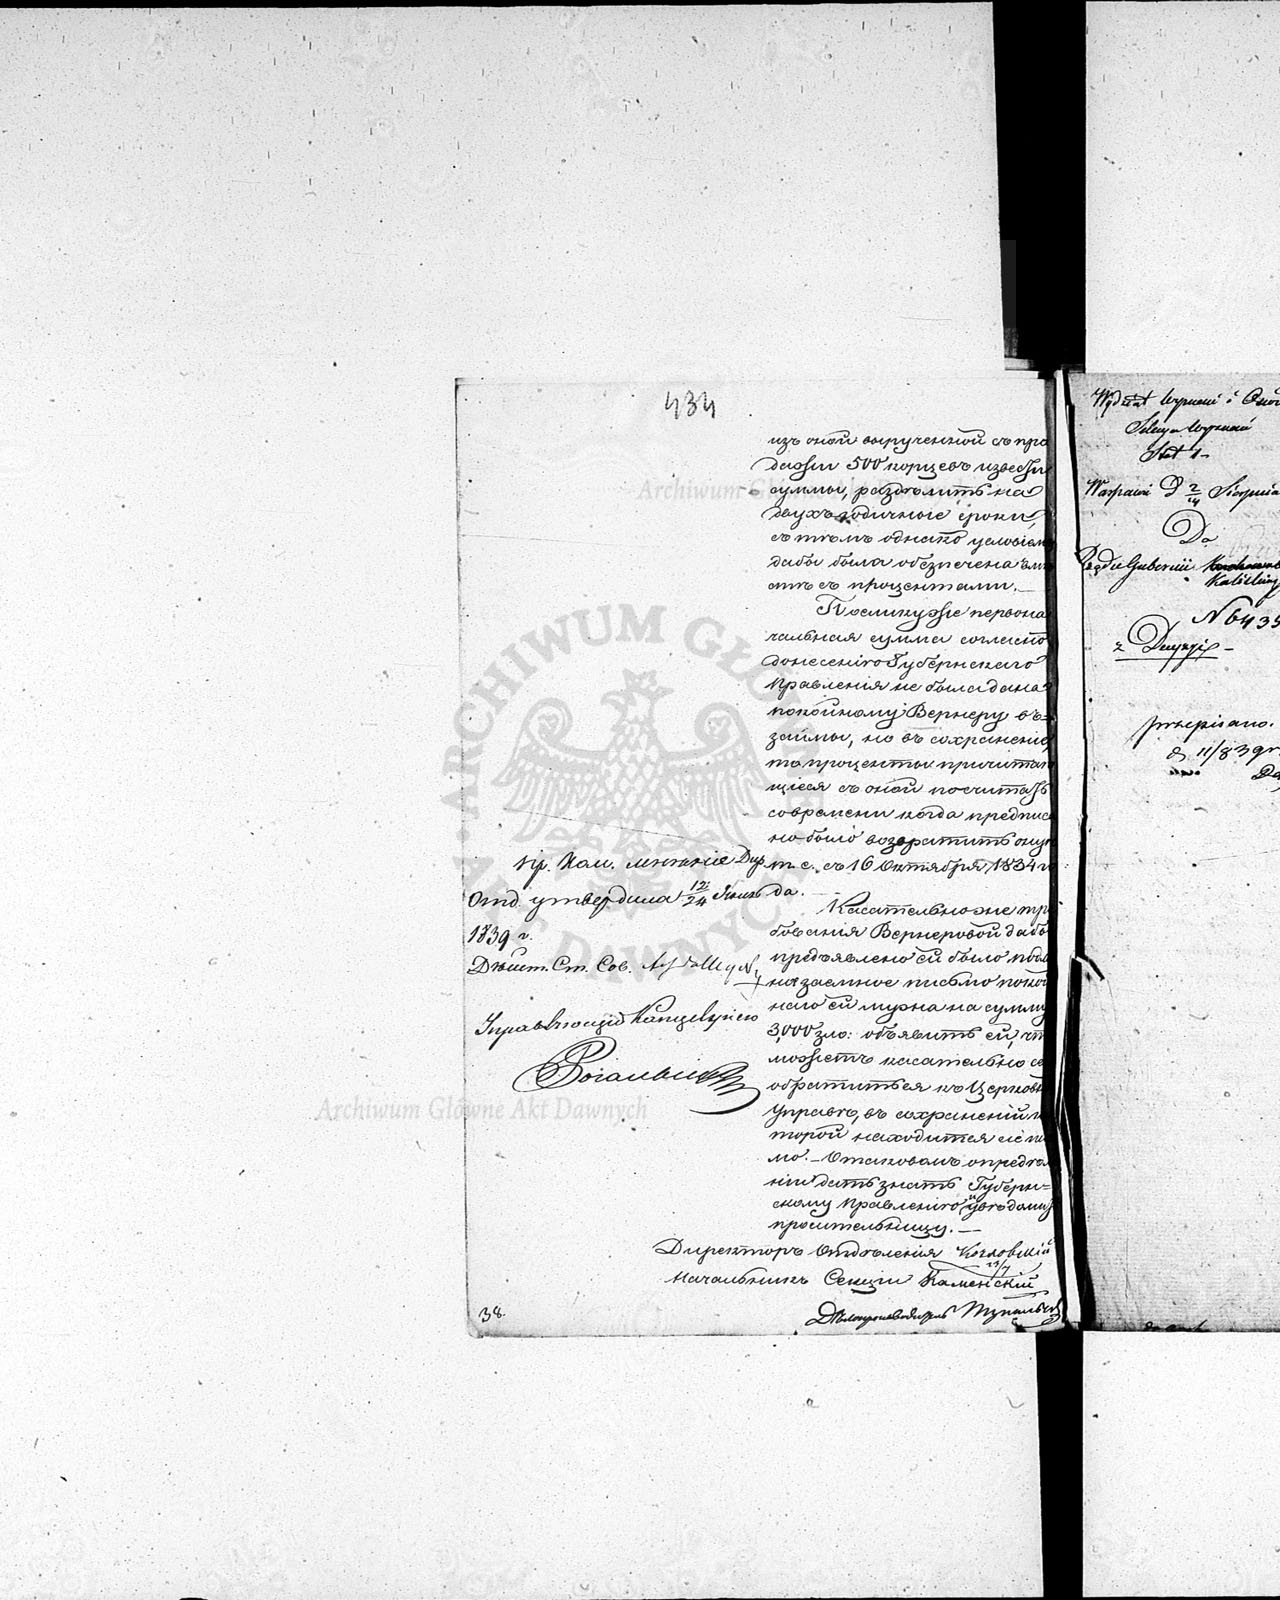 434
изъ оной вырученной съ про
дажи 500 корцевъ извести
суммы, раздѣлить на
двухъ годичные сроки,
съ тѣмъ однако условіем
дабы была обезпечена вмѣ
стѣ съ процентами. —
Поелику же первона
чальная сумма согласно
донесенію Губернскаго
Правленія не была дана
покойному Вернеру въ
займы, но въ сохраненіе,
то проценты причитаю
щіеся съ оной посчитать
со времени когда предписа
но было возвратить оную
т. е. съ 16 Октября 1834 го
да. —
Касательно же тре
бованія Вернеровой дабы
предъявлено ей было подлин
ное заемное письмо покой
наго ей мужа на сумму
3,000 зло: объявить ей, что
можетъ касательно сего
обратиться къ Церковн
Управѣ, въ сохраненіи ко
торой находится сіе пись
мо. — О таковомъ опредѣле
ніи дать знать Губерн=
скому Правленію и увѣдомить
просительницу. —
Пр. Ком. мнѣніе Дир
Отд. утвердила 12/24 Іюля
1839 г.
Дѣйст. Ст. Сов.
Управляющій Канцеляріею
Директоръ Отдѣленія Козловскій
23/7
Начальникъ Секціи Каменскій
Дѣлопроизводитель
38
Wydział Wyznań i
Sekcya Wyznań
Stół 1
Warszawa D 2/14 Sierpnia
Do
Rządu Gubernii
Kaliskiej
N 6435
z Decyzji —
przepisano.
d 11/8 39 r.